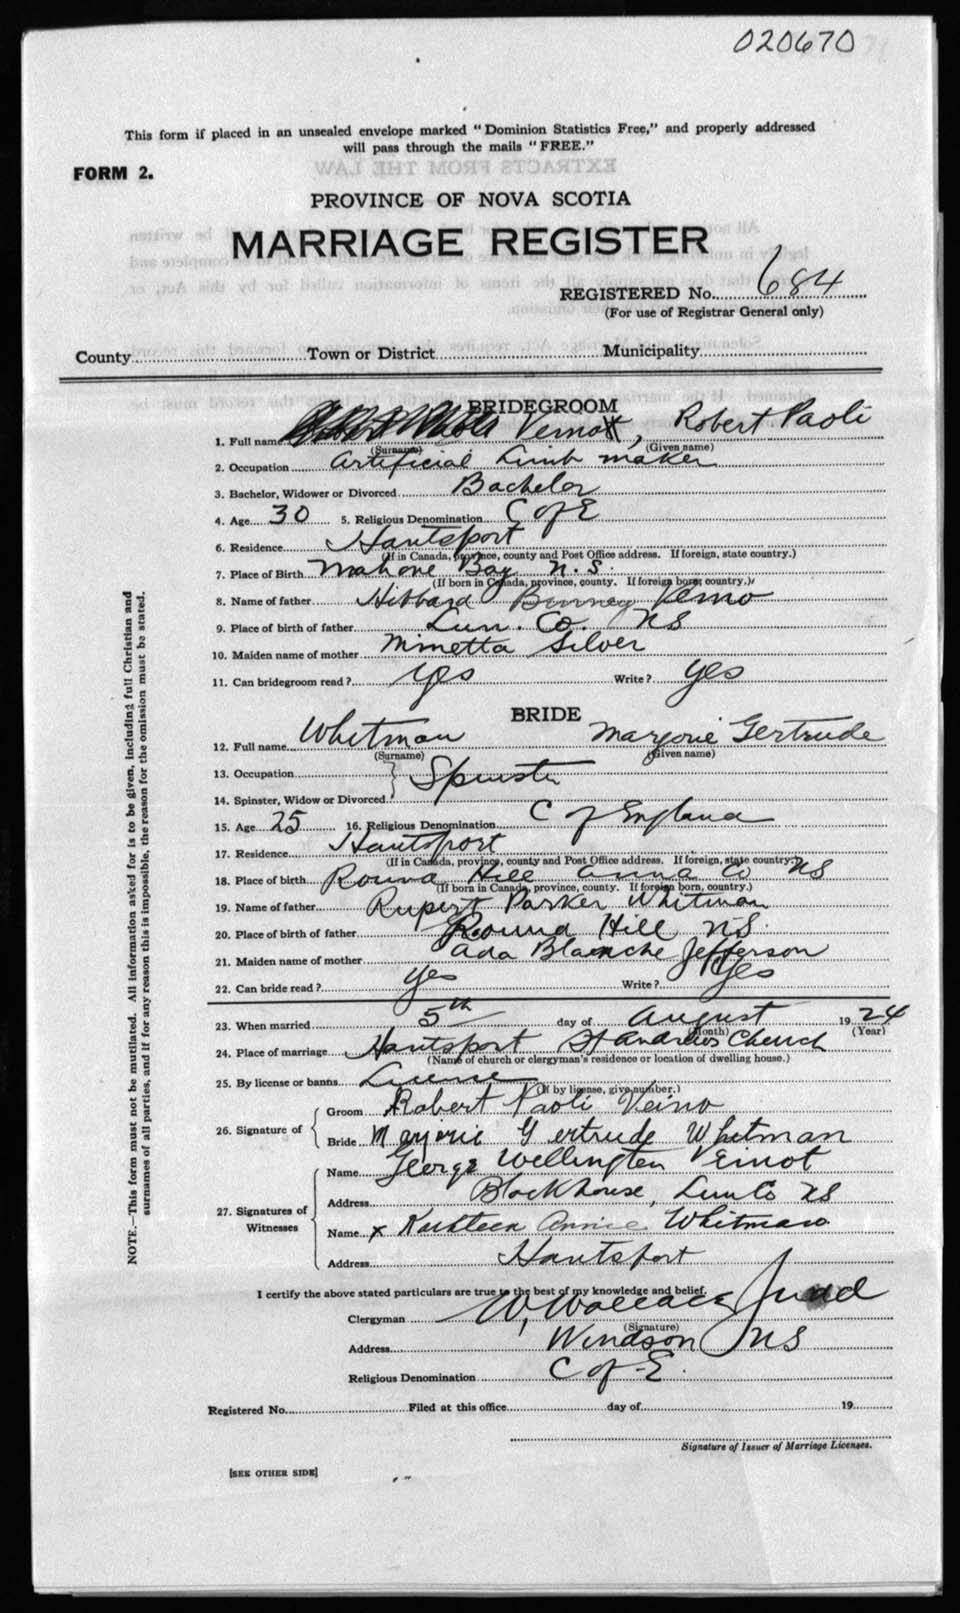 020670
This form if placed in an unsealed envelope marked "Dominion Statistics Free," and properly addressed
will pass through the mails "FREE."
FORM 2.
PROVINCE OF NOVA SCOTIA
MARRIAGE REGISTER
REGISTERED No. 684
(For use of Registrar General only)
County Town or District Municipality
BRIDEGROOM
1. Full name Veinott, Robert Paoli
(Surname) (Given name)
2. Occupation Artificial Limb maker
3. Bachelor, Widower or Divorced Bachelor
4. Age 30 5. Religious Denomination C of E
6. Residence Hantsport
(If in Canada, province, county and Post Office address. If foreign, state country.)
7. Place of Birth Mahone Bay N.S.
(If born in Canada, province, county. If foreign born, country.)
8. Name of father Hibbard Binney Veino
9. Place of birth of father Lun. Co. NS
10. Maiden name of mother Minetta Silver
11. Can bridegroom read? yes Write? yes
BRIDE
12. Full name Whitman Marjorie Gertrude
(Surname) (Given name)
13. Occupation
14. Spinster, Widow or Divorced Spinster
15. Age 25 16. Religious Denomination C of England
17. Residence Hantsport
(If in Canada, province, county and Post Office address. If foreign, state country.)
18. Place of birth Round Hill Anna Co NS
(If born in Canada, province, county. If foreign born, country.)
19. Name of father Rupert Parker Whitman
20. Place of birth of father Round Hill NS.
21. Maiden name of mother Ada Blanche Jefferson
22. Can bride read? yes Write? yes
23. When married 5th day of August 1924
(Month) (Year)
24. Place of marriage Hantsport St Andrews Church
(Name of church or clergyman's residence or location of dwelling house.)
25. By license or banns License
(If by license, give number.)
26. Signature of
Groom Robert Paoli Veino
Bride Marjorie Gertrude Whitman
27. Signatures of Witnesses
Name George Wellington Veinot
Address Blockhouse, Lun Co NS
Name x Kathleen Annie Whitman
Address Hantsport
I certify the above stated particulars are true to the best of my knowledge and belief.
Clergyman W. Wallace Judd
(Signature)
Address Windsor NS
Religious Denomination C of E.
Registered No. Filed at this office day of 19
Signature of Issuer of Marriage Licenses.
[SEE OTHER SIDE]
NOTE.—This form must not be mutilated. All information asked for is to be given, including full Christian and
surnames of all parties, and if for any reason this is impossible, the reason for the omission must be stated.